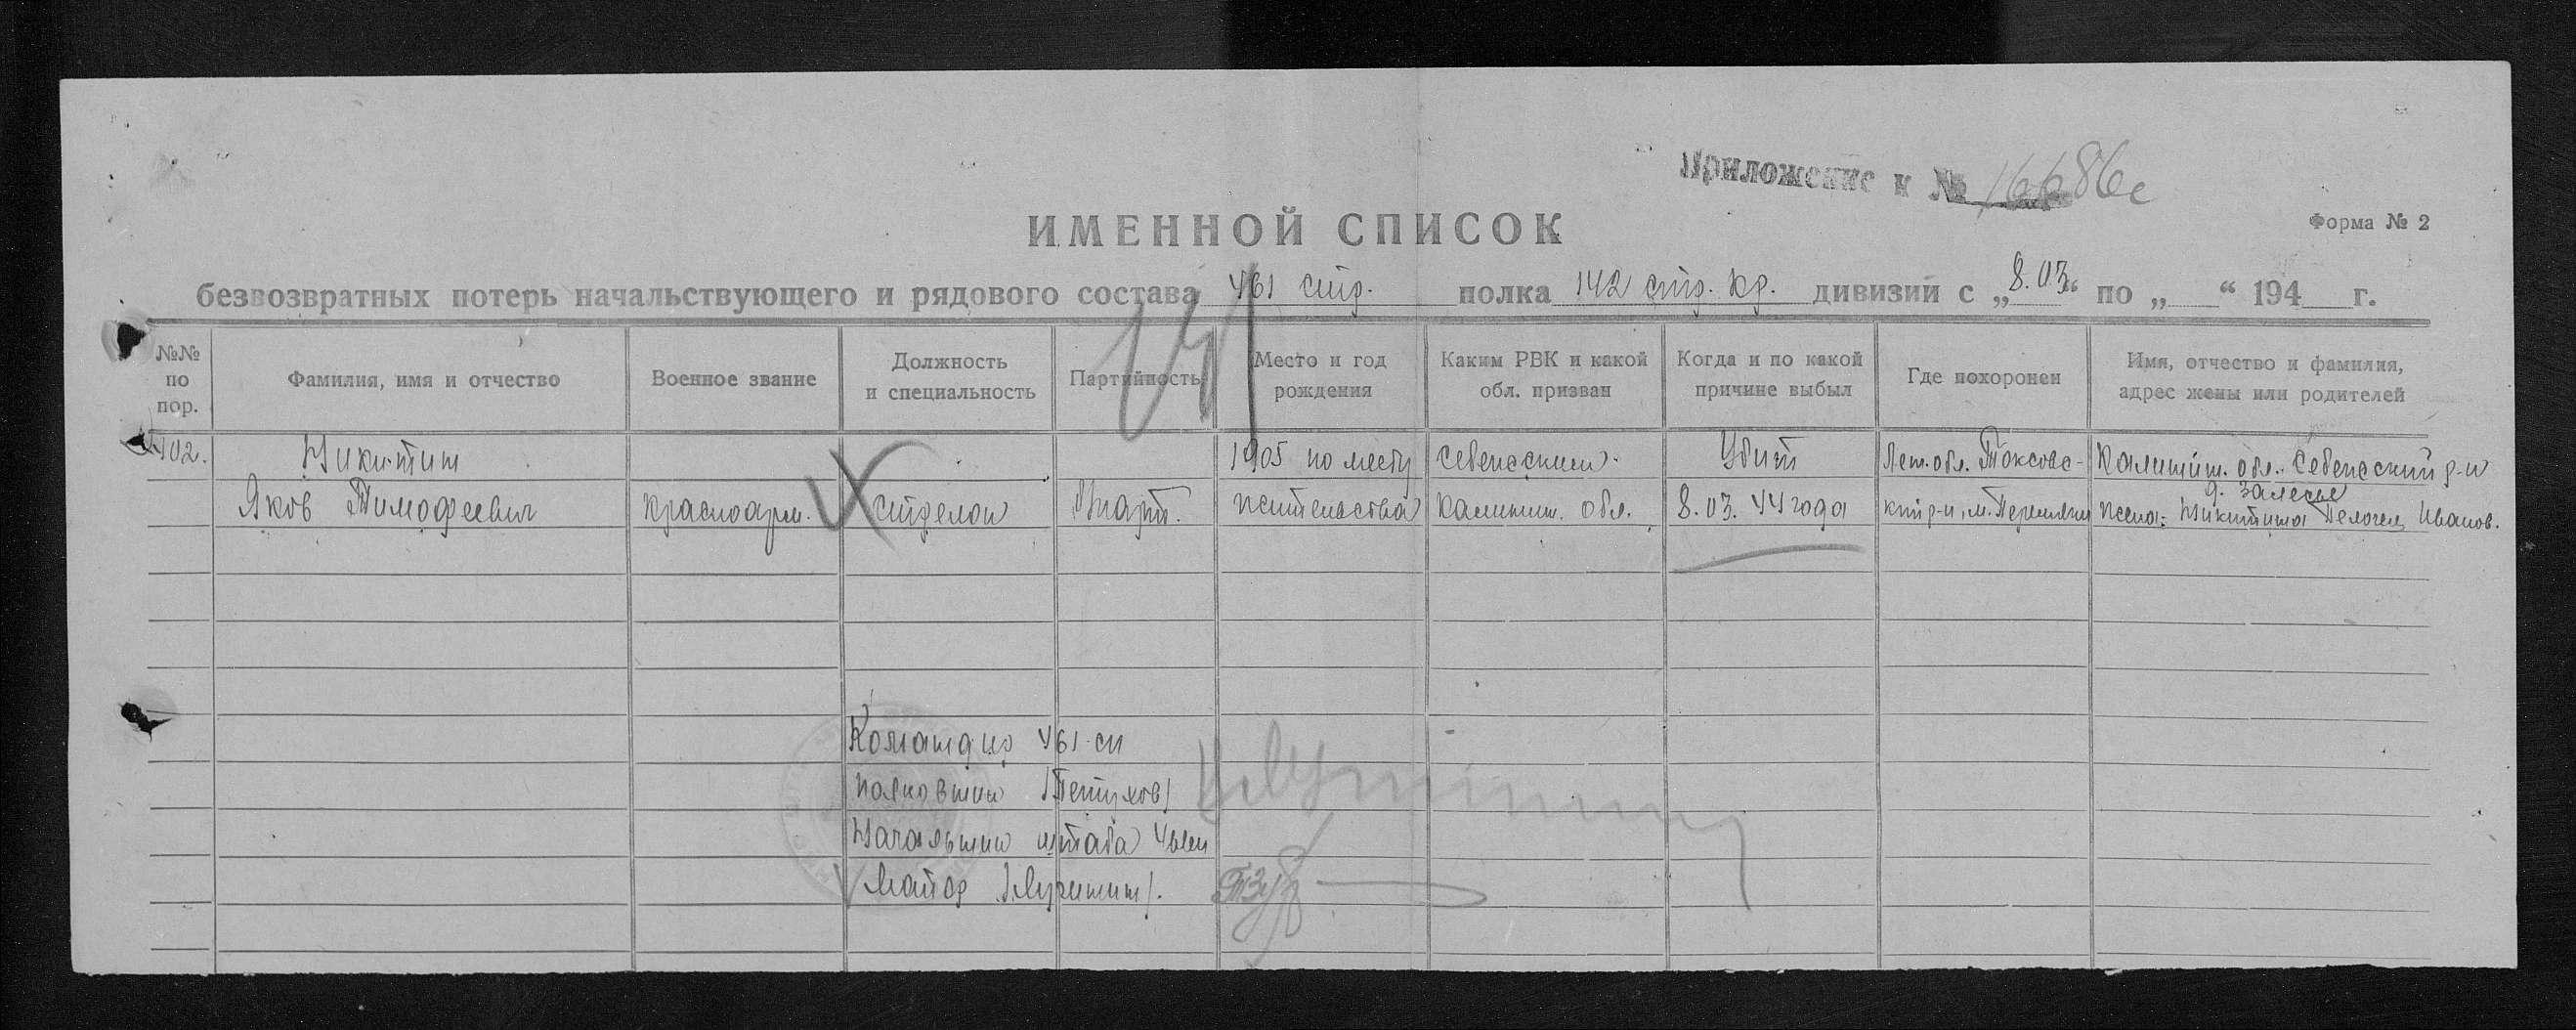 Приложение к № 16686с
ИМЕННОЙ СПИСОК
Форма № 2
безвозвратных потерь начальствующего и рядового состава 461 стр. полка 142 стр. кр. дивизий с „8.03“ по „ “ 194 г.
№№ по пор.
Фамилия, имя и отчество
Военное звание
Должность и специальность
Партийность
Место и год рождения
Каким РВК и какой обл. призван
Когда и по какой причине выбыл
Где похоронен
Имя, отчество и фамилия, адрес жены или родителей
102. Никитин 1905 по месту Себежским Убит Лен. обл. Токсовс- Калинин. обл. Себежский р-н
д. Залесье
Яков Тимофеевич красноарм. стрелок жительства Калинин. обл. 8.03.44 года кий р-н, м. жена: Никитина Иванов.
Командир 461 сп
полковник /Петухов/
Начальник штаба 461 сп
Майор